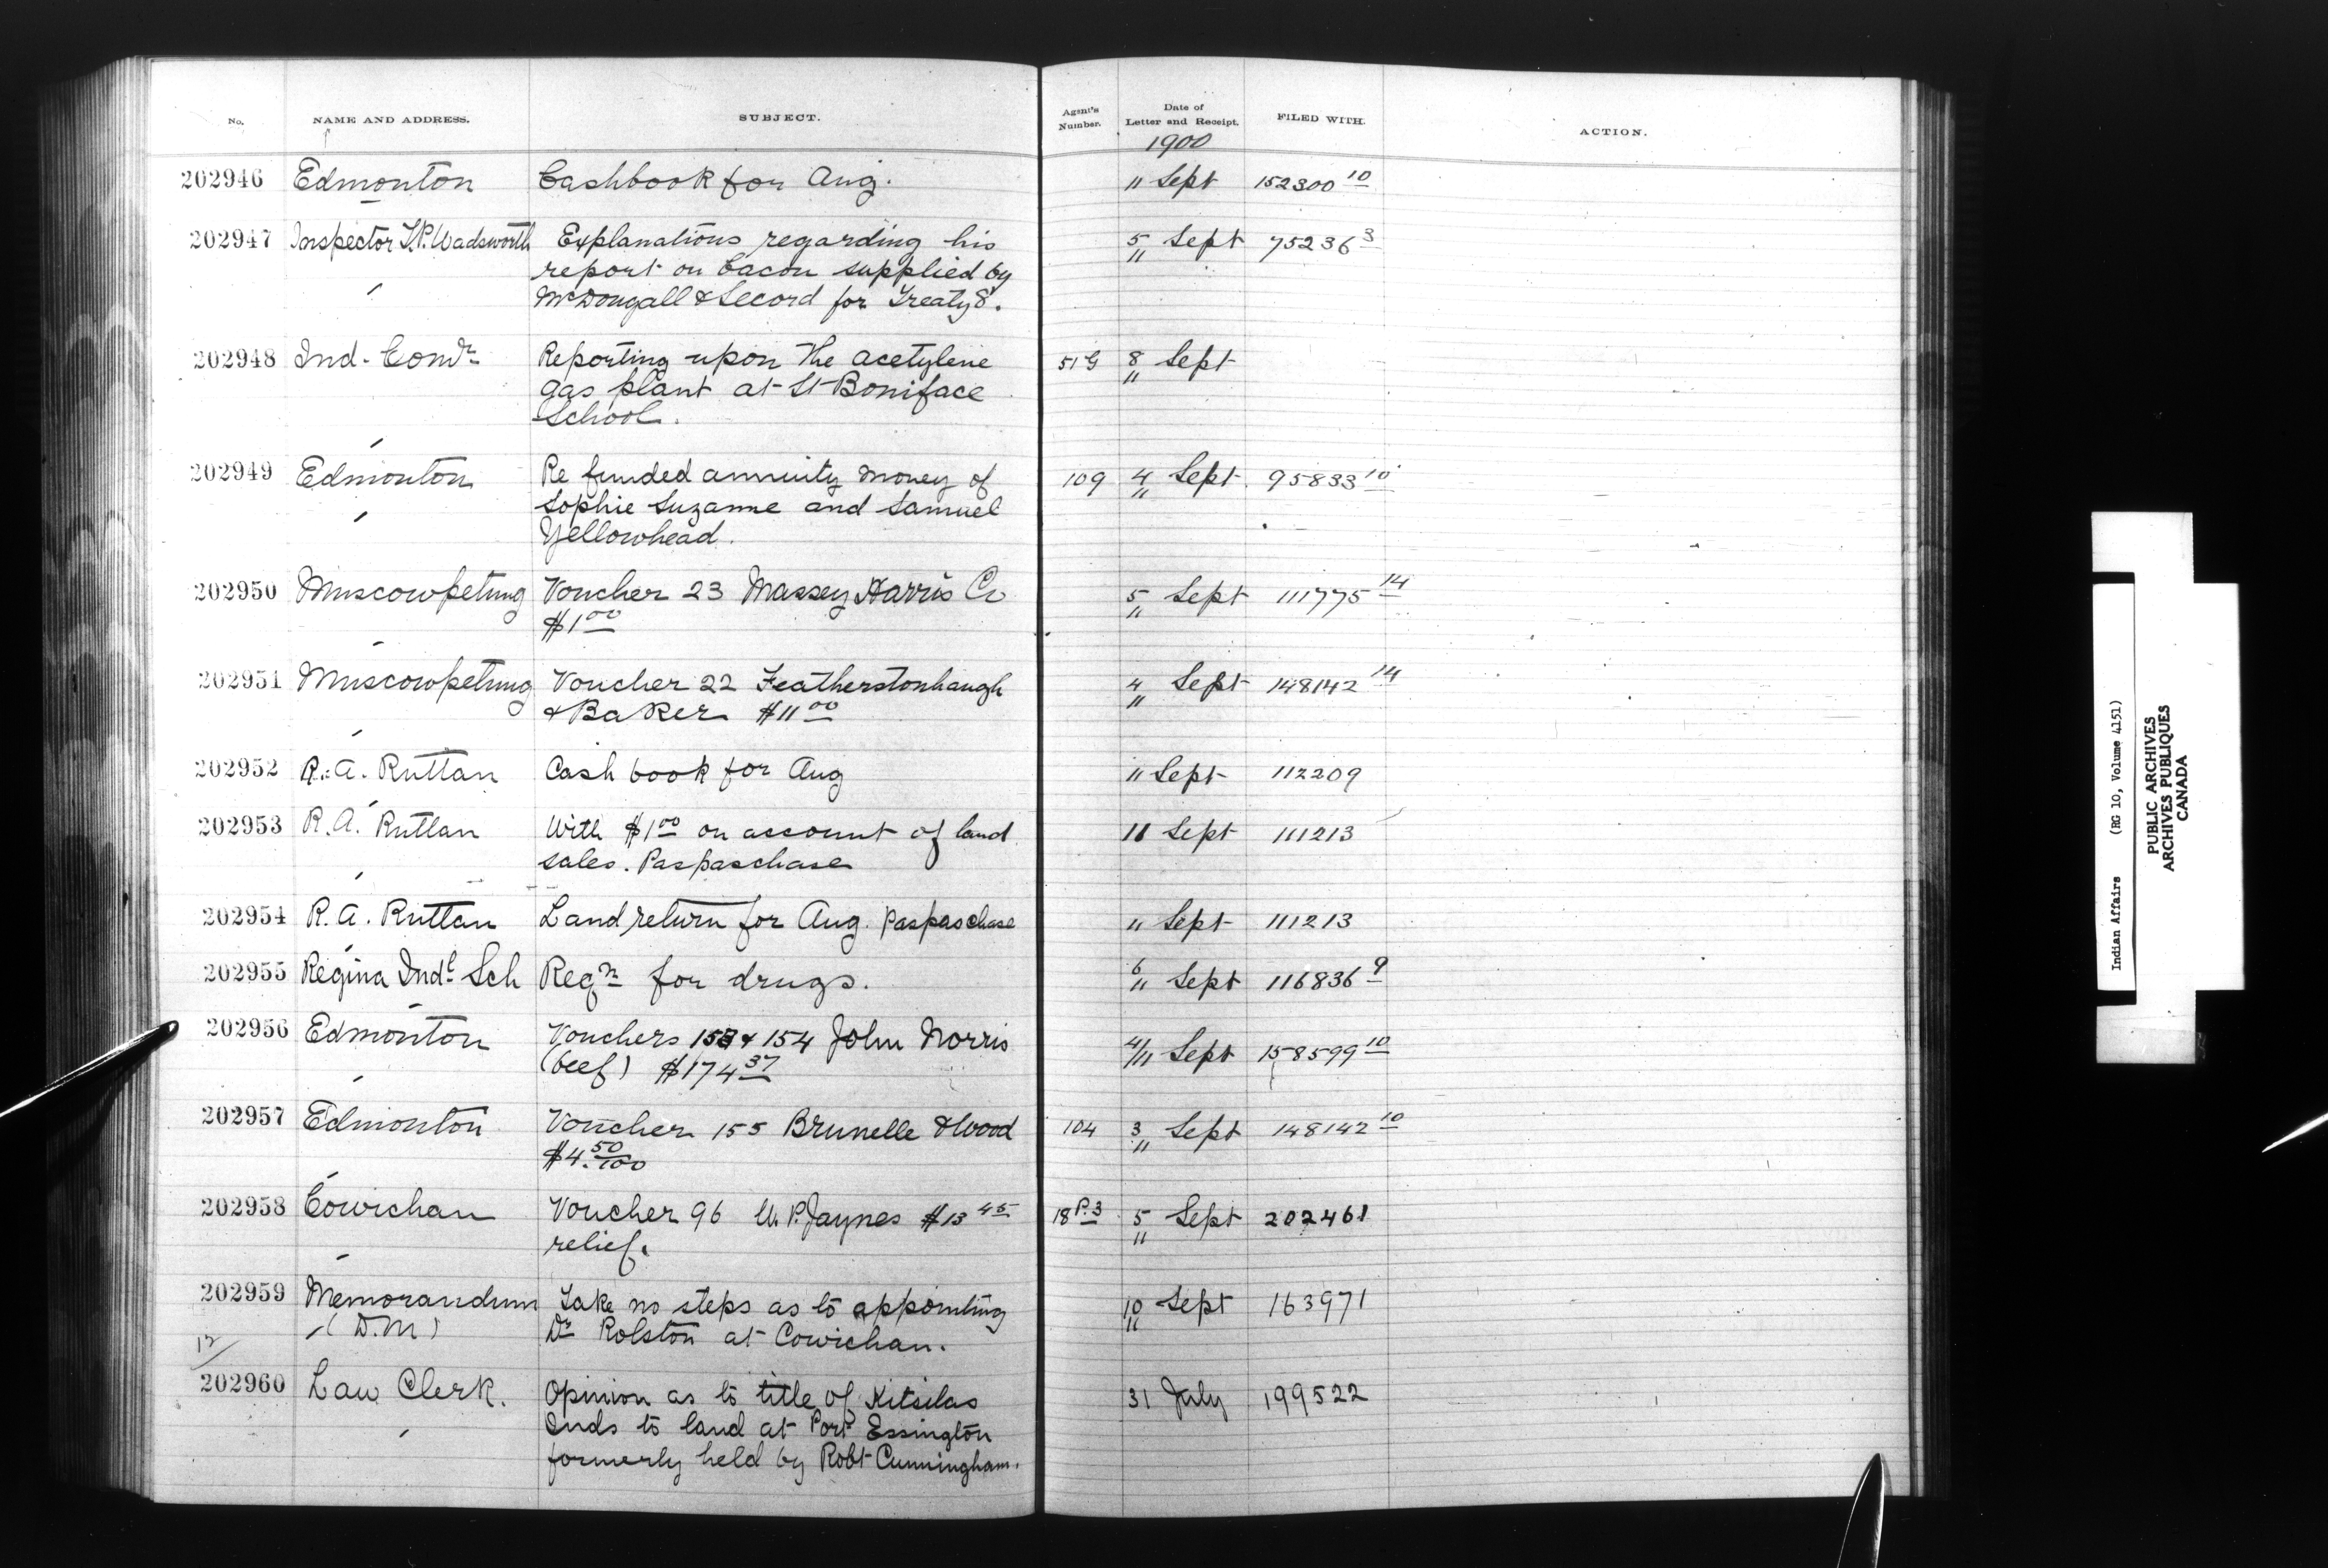 No. NAME AND ADDRESS. SUBJECT. Agent's Number. Date of Letter and Receipt. FILED WITH. ACTION.
1900
202946 Edmonton Cashbook for Aug. 11 Sept 152300 10
202947 Inspector T.P. Wadsworth Explanations regarding his 5/11 Sept 75236 3
report on bacon supplied by
McDougall & Secord for Treaty 8.
202948 Ind. Comr Reporting upon the acetylene 51 G 8/11 Sept
gas plant at St Boniface
School.
202949 Edmonton Re funded annuity money of 109 4/11 Sept. 95833 10
Sophie Suzanne and Samuel
Yellowhead.
202950 Muscowpetung Voucher 23 Massey Harris Co 5/11 Sept 111775 14
$1 00
202951 Muscowpetung Voucher 22 Featherstonhaugh 4/11 Sept 148142 14
& Baker $11 00
202952 R. A. Ruttan Cash book for Aug 11 Sept 112209
202953 R. A. Ruttan With $1 00 on account of land 11 Sept 111213
sales. Paspaschase
202954 R. A. Ruttan Land return for Aug. Paspaschase 11 Sept 111213
202955 Regina Indl Sch Reqn for drugs. 6/11 Sept 116836 9
202956 Edmonton Vouchers 153 & 154 John Norris 4/11 Sept 158599 10
(beef) $174 37
202957 Edmonton Voucher 155 Brunelle & Wood 104 3/11 Sept 148142 10
$4. 50/100
202958 Cowichan Voucher 96 W. P. Jaynes $13 45 18 P.3 5/11 Sept 202461
relief.
202959 Memorandum Take no steps as to appointing 10/11 Sept 163971
(D.M) Dr Rolston at Cowichan.
12/
202960 Law Clerk. Opinion as to title of Kitselas 31 July 199522
Inds to land at Port Essington
formerly held by Robt Cunningham.
Indian Affairs (RG 10, Volume 4151)
PUBLIC ARCHIVES
ARCHIVES PUBLIQUES
CANADA